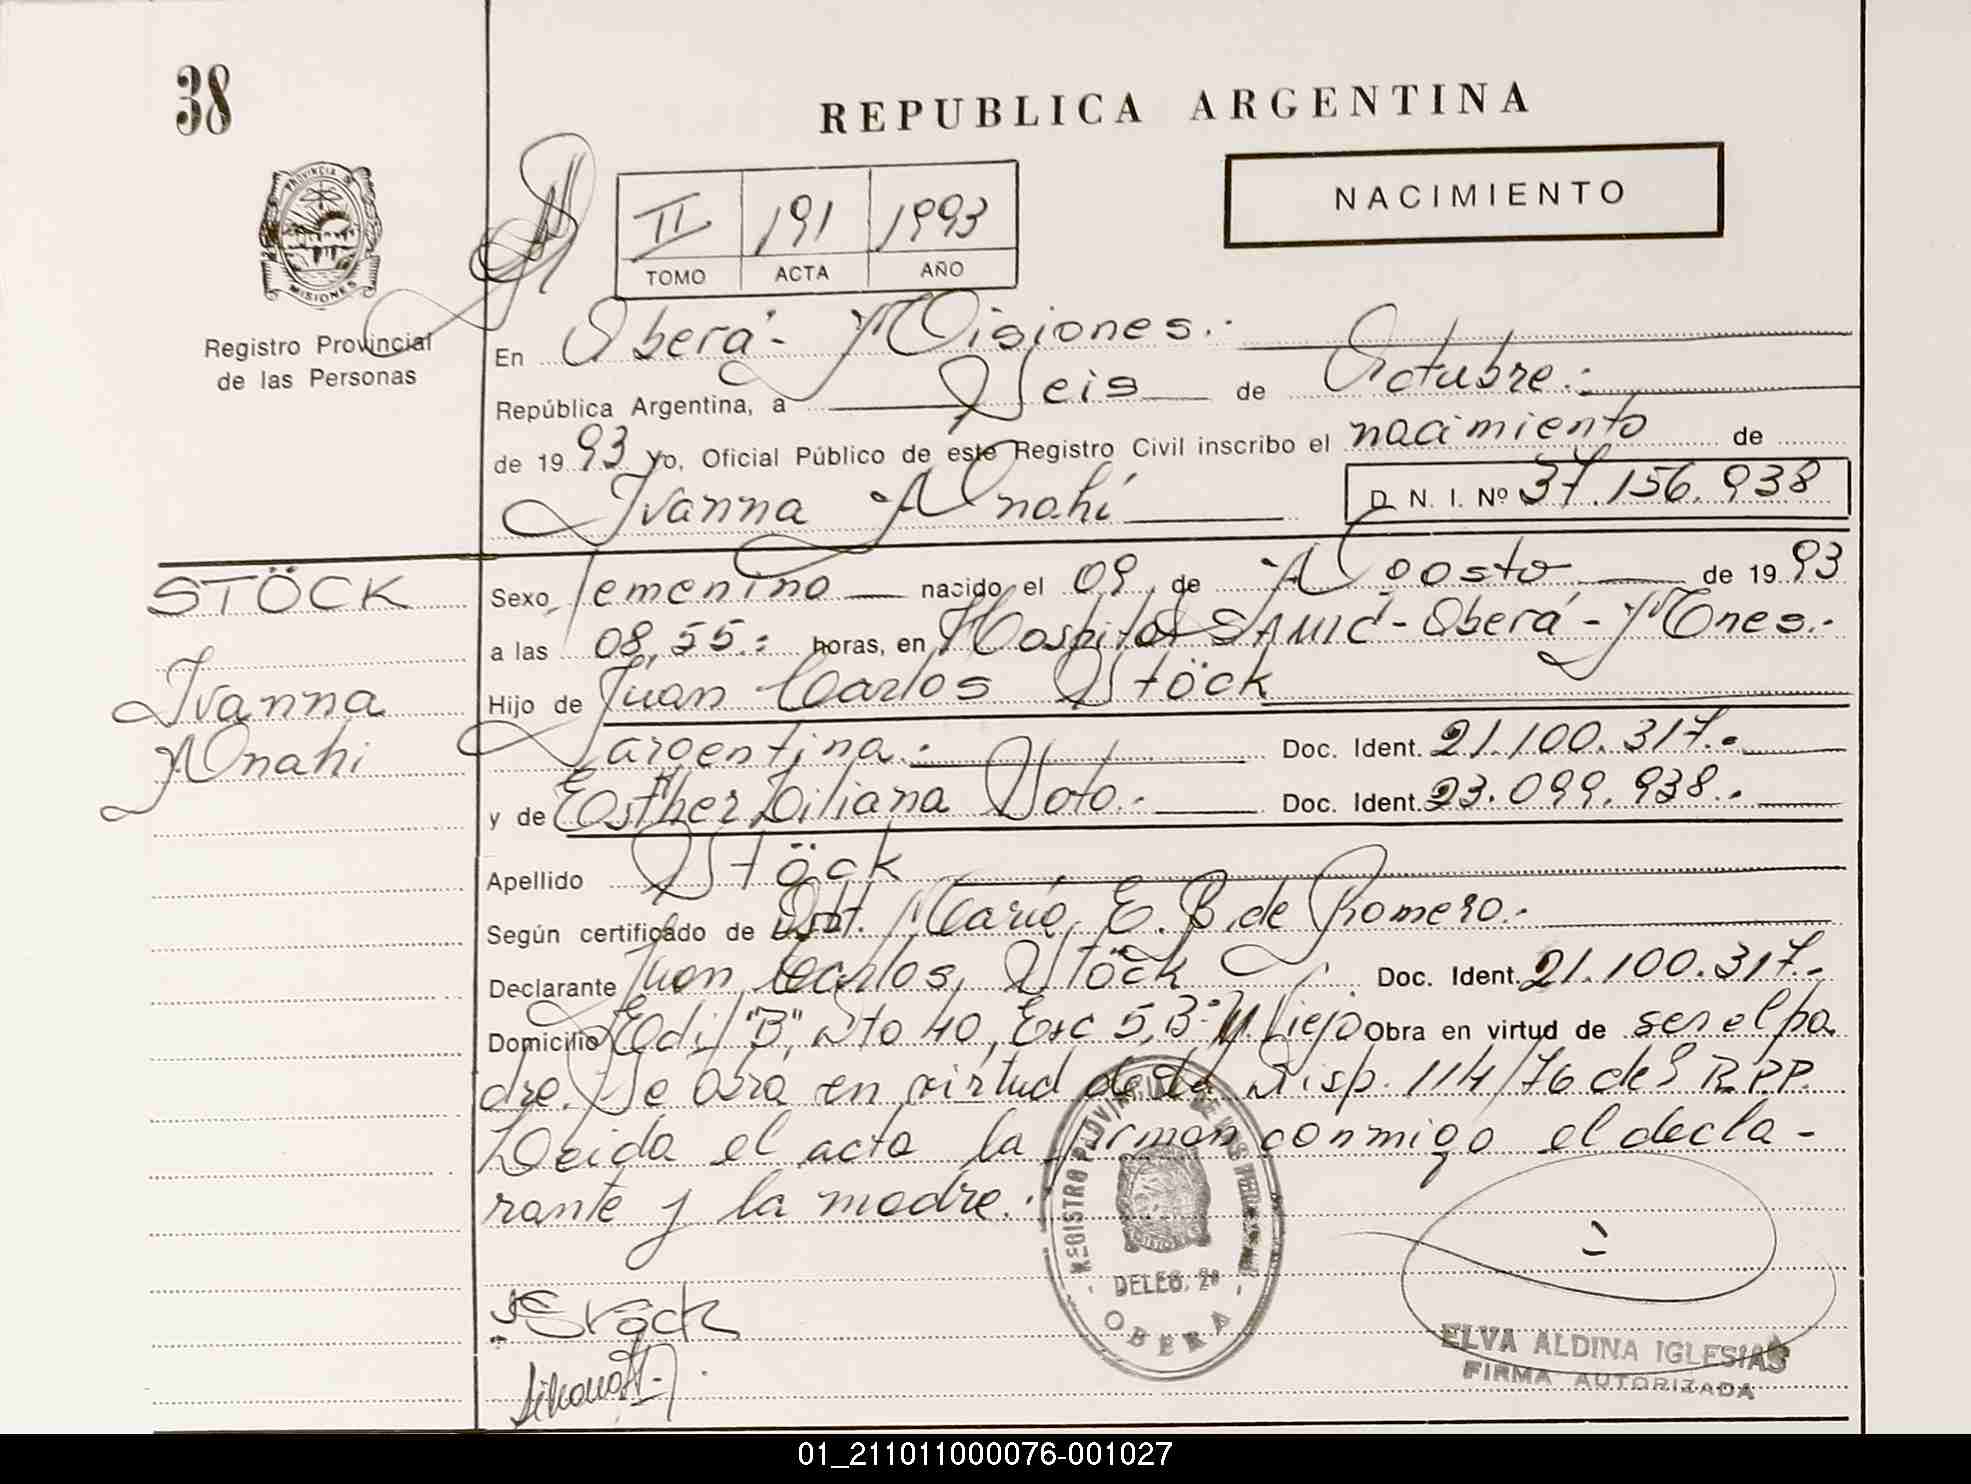 38
REPUBLICA ARGENTINA
PROVINCIA DE
MISIONES
Registro Provincial
de las Personas
II 191 1993
TOMO ACTA AÑO
NACIMIENTO
En Oberá - Misiones.-
República Argentina, a Seis de Octubre.-
de 1993 yo, Oficial Público de este Registro Civil inscribo el nacimiento de
Ivanna Anahí D. N. I. Nº 37.156.938
STÖCK
Ivanna
Anahi
Sexo femenino nacido el 09 de Agosto de 1993
a las 08,55.- horas, en Hospital SAMIC - Oberá - Mnes.-
Hijo de Juan Carlos Stöck
argentina.- Doc. Ident. 21.100.317.-
y de Esther Liliana Soto.- Doc. Ident. 23.099.938.-
Apellido Stöck
Según certificado de Obst. María E. B. de Romero.-
Declarante Juan Carlos Stöck Doc. Ident. 21.100.317.-
Domicilio Edif "B", Dto 40, Esc 5, Bº V. Viejo Obra en virtud de ser el pa
dre. Se obra en virtud de la Disp. 114/76 del R.P.P.
Leida el acta la firman conmigo el decla-
rante y la madre.-
REGISTRO PROVINCIAL DE LAS PERSONAS
DELEG. 2ª
OBERA
Stöck
ELVA ALDINA IGLESIAS
FIRMA AUTORIZADA
01_211011000076-001027